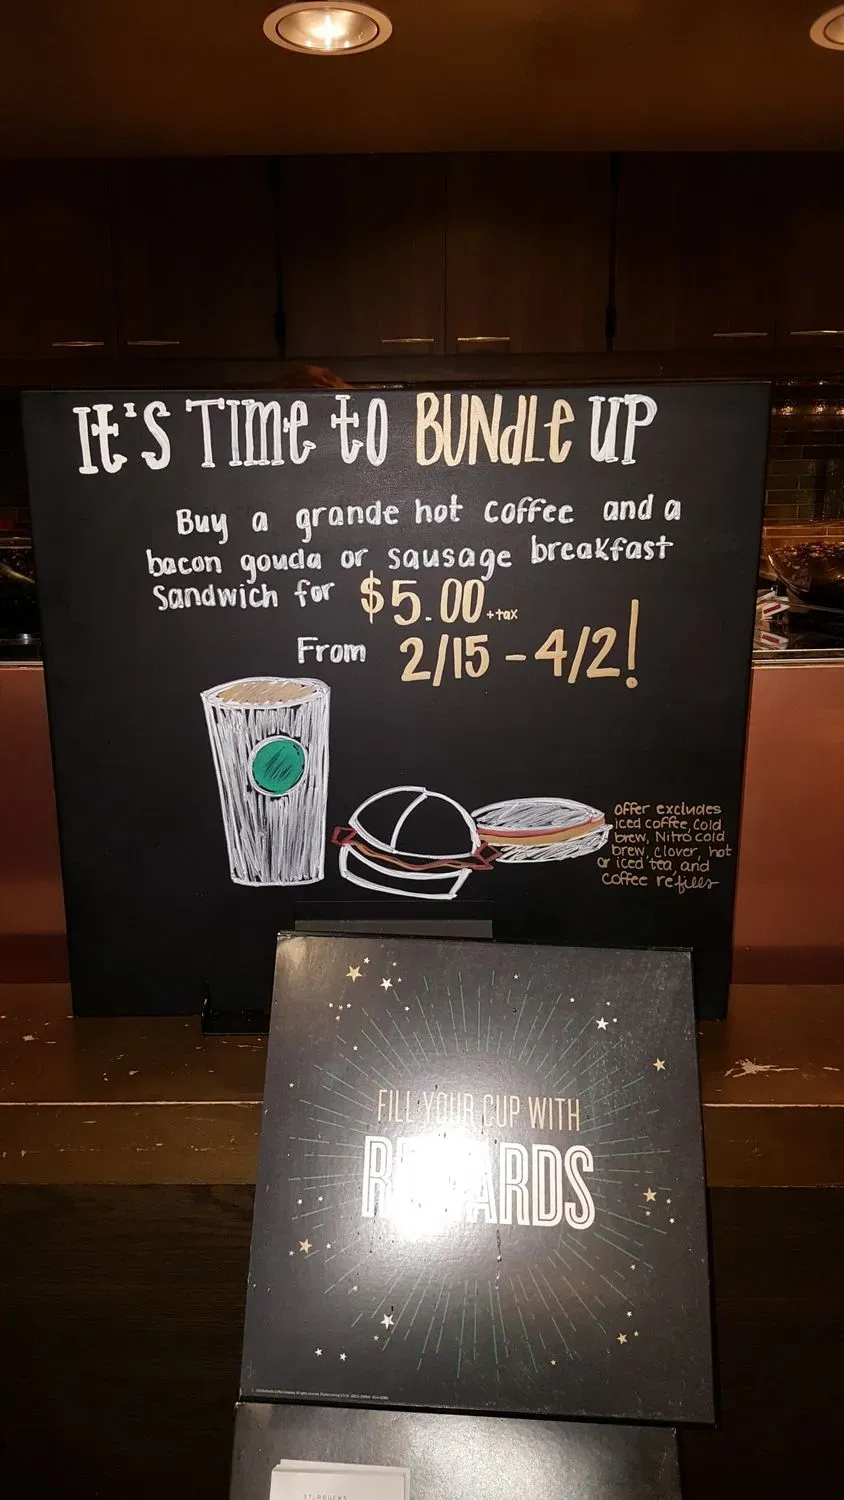 It's Time to BUNdLe UP
Buy a grande hot coffee and a
bacon gouda or sausage breakfast
Sandwich for $5.00 +tax
From 2/15 - 4/2!
Offer excludes
iced coffee, Cold
brew, Nitro cold
brew, Clover, hot
or iced tea, and
coffee refills
FILL YOUR CUP WITH
REWARDS
STARBUCKS